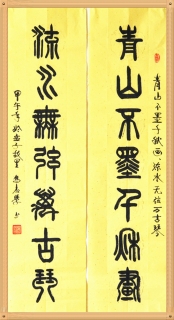 青山不墨千秋画流水无弦万古琴
青山不墨千秋畫
流水無弦萬古琴
甲午年